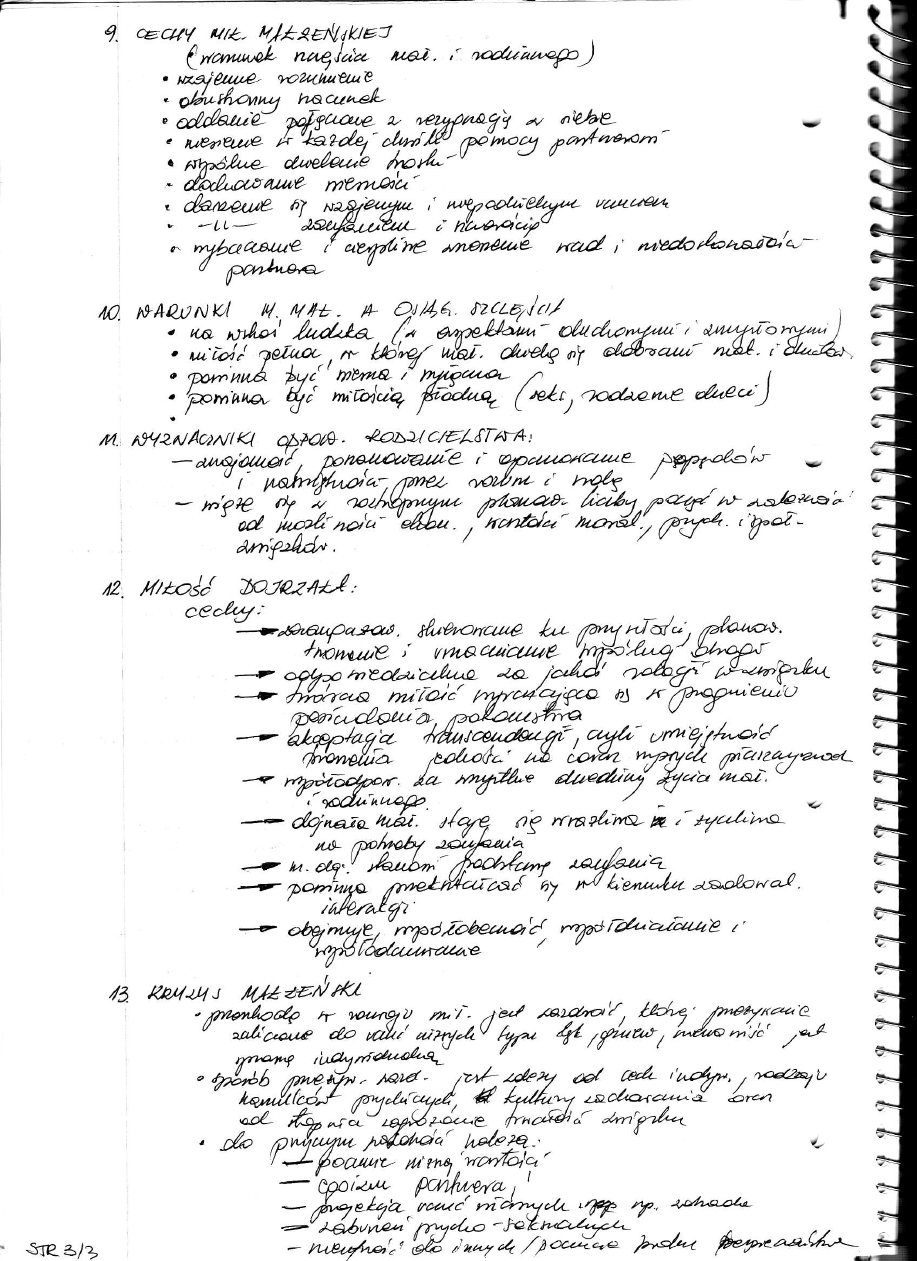 9. CECHY MIŁ. MAŁŻEŃSKIEJ
(warunek szczęścia mał. i rodzinnego)
• wzajemne rozumienie
• obustronny szacunek
• oddanie połączone z rezygnacją z siebie
• niesienie w każdej chwili pomocy partnerom
• wspólne dzielenie trosk
• dochowanie wierności
• darzenie się wzajemnym i niepodzielnym uczuciem
• -11- zaufaniem i
• wybaczanie i cierpliwe znoszenie wad i niedoskonałości
partnera
10. WARUNKI M. MAŁ. A OSIĄG. SZCZĘŚCIA
• na wskroś ludzka (z aspektami duchowymi i zmysłowymi)
• miłość pełna, w której mał. dzielą się dobrami mat. i duchow.
• powinna być wierna i wyłączna
• powinna być miłością płodną (seks, rodzenie dzieci)
•
11. WYZNACZNIKI ODPOW. RODZICIELSTWA:
— znajomość, poszanowanie i opanowanie popędów
i namiętności przez rozum i wolę
— wiąże się z roztropnym planow. liczby poczęć w zależności
od możliwości ekon., wartości moral., psych. i społ.
związków.
12. MIŁOŚĆ DOJRZAŁA:
cechy:
→ zaangażow. skierowane ku przyszłości, planow.
tworzenie i umacnianie wspólnej drogi
→ odpowiedzialna za jakość relacji w związku
→ twórcza miłość wyrażająca się w pragnieniu
posiadania potomstwa
→ akceptacja transcendencji, czyli umiejętność
tworzenia jedności na coraz wyższych płaszczyznach
→ współodpow. za wszystkie dziedziny życia mał.
i rodzinnego
→ dojrzała mał. staje się wrażliwa i życzliwa
na potrzeby zaufania
→ m. doj. stanowi podstawę zaufania
→ powinna przekształcać się w kierunku zadowal.
interakcji
→ obejmuje, współobecność, współdziałanie i
współodczuwanie
13. KRYZYS MAŁŻEŃSKI
• przeszkodą w rozwoju mił. jest zazdrość, której przeżywanie
zaliczane do uczuć niższych typu lęk, gniew, nienawiść jest
sprawą indywidualną
• sposób przeżyw. zazd. jest zależy od cech indyw., rodzaju
hamulców psychicznych, kultury zachowania oraz
od stopnia zagrożenia trwałości związku
• do przyczyn zazdrości należą:
— poczucie niższej wartości
— egoizm partnera,
— projekcja uczuć własnych np. zdrada
— zaburzeń psycho-seksualnych
— nieufność do innych / poczucie bezpieczeństwa
STR 3/3